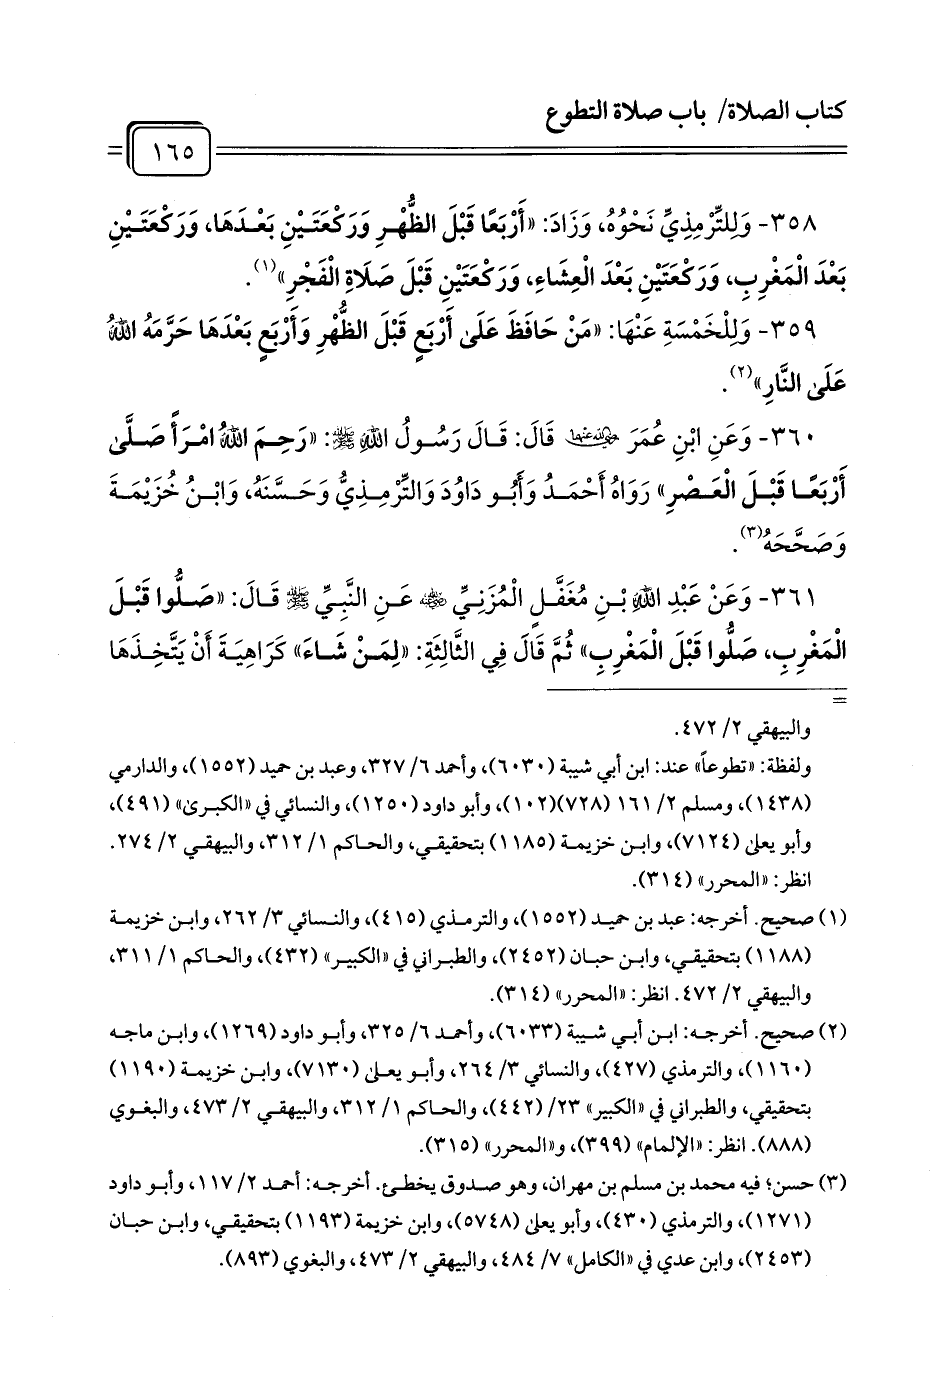 كتاب الصلاة/ باب صلاة التطوع
١٦٥
٣٥٨- وَلِلتِّرْمِذِيِّ نَحْوُهُ، وَزَادَ: «أَرْبَعًا قَبْلَ الظُّهْرِ وَرَكْعَتَيْنِ بَعْدَهَا، وَرَكْعَتَيْنِ
بَعْدَ الْمَغْرِبِ، وَرَكْعَتَيْنِ بَعْدَ الْعِشَاءِ، وَرَكْعَتَيْنِ قَبْلَ صَلَاةِ الْفَجْرِ»(١).
٣٥٩- وَلِلْخَمْسَةِ عَنْهَا: «مَنْ حَافَظَ عَلَى أَرْبَعٍ قَبْلَ الظُّهْرِ وَأَرْبَعٍ بَعْدَهَا حَرَّمَهُ اللهُ
عَلَى النَّارِ»(٢).
٣٦٠- وَعَنِ ابْنِ عُمَرَ رضي الله عنهما قَالَ: قَالَ رَسُولُ اللهِ ﷺ: «رَحِمَ اللهُ امْرَأً صَلَّى
أَرْبَعًا قَبْلَ الْعَصْرِ» رَوَاهُ أَحْمَدُ وَأَبُو دَاوُدَ وَالتِّرْمِذِيُّ وَحَسَّنَهُ، وَابْنُ خُزَيْمَةَ
وَصَحَّحَهُ(٣).
٣٦١- وَعَنْ عَبْدِ اللهِ بْنِ مُغَفَّلٍ الْمُزَنِيِّ رضي الله عنه عَنِ النَّبِيِّ ﷺ قَالَ: «صَلُّوا قَبْلَ
الْمَغْرِبِ، صَلُّوا قَبْلَ الْمَغْرِبِ» ثُمَّ قَالَ فِي الثَّالِثَةِ: «لِمَنْ شَاءَ» كَرَاهِيَةَ أَنْ يَتَّخِذَهَا
=
والبيهقي ٢/ ٤٧٢.
ولفظة: «تطوعاً» عند: ابن أبي شيبة (٦٠٣٠)، وأحمد ٦/ ٣٢٧، وعبد بن حميد (١٥٥٢)، والدارمي
(١٤٣٨)، ومسلم ٢/ ١٦١ (٧٢٨)(١٠٢)، وأبو داود (١٢٥٠)، والنسائي في «الكبرى» (٤٩١)،
وأبو يعلى (٧١٢٤)، وابن خزيمة (١١٨٥) بتحقيقي، والحاكم ١/ ٣١٢، والبيهقي ٢/ ٢٧٤.
انظر: «المحرر» (٣١٤).
(١) صحيح. أخرجه: عبد بن حميد (١٥٥٢)، والترمذي (٤١٥)، والنسائي ٣/ ٢٦٢، وابن خزيمة
(١١٨٨) بتحقيقي، وابن حبان (٢٤٥٢)، والطبراني في «الكبير» (٤٣٢)، والحاكم ١/ ٣١١،
والبيهقي ٢/ ٤٧٢. انظر: «المحرر» (٣١٤).
(٢) صحيح. أخرجه: ابن أبي شيبة (٦٠٣٣)، وأحمد ٦/ ٣٢٥، وأبو داود (١٢٦٩)، وابن ماجه
(١١٦٠)، والترمذي (٤٢٧)، والنسائي ٣/ ٢٦٤، وأبو يعلى (٧١٣٠)، وابن خزيمة (١١٩٠)
بتحقيقي، والطبراني في «الكبير» ٢٣/ (٤٤٢)، والحاكم ١/ ٣١٢، والبيهقي ٢/ ٤٧٣، والبغوي
(٨٨٨). انظر: «الإلمام» (٣٩٩)، و«المحرر» (٣١٥).
(٣) حسن؛ فيه محمد بن مسلم بن مهران، وهو صدوق يخطئ. أخرجه: أحمد ٢/ ١١٧، وأبو داود
(١٢٧١)، والترمذي (٤٣٠)، وأبو يعلى (٥٧٤٨)، وابن خزيمة (١١٩٣) بتحقيقي، وابن حبان
(٢٤٥٣)، وابن عدي في «الكامل» ٧/ ٤٨٤، والبيهقي ٢/ ٤٧٣، والبغوي (٨٩٣).